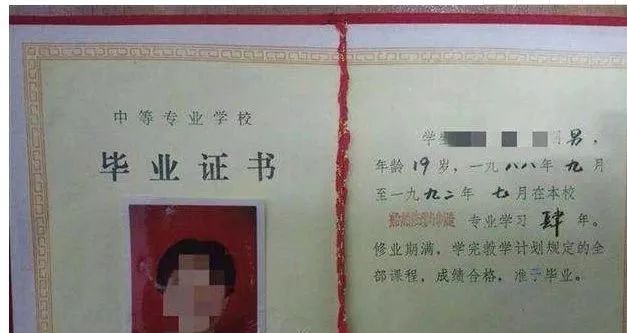 中等专业学校
毕业证书
学生 男，
年龄19岁，一九八八年九月
至一九九二年七月在本校
专业学习肆年。
修业期满，学完教学计划规定的全
部课程，成绩合格，准予毕业。